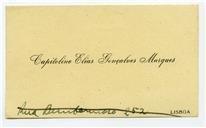 Capitolino Elias Gonçalves Marques
Rua Bemformoso 252
LISBOA